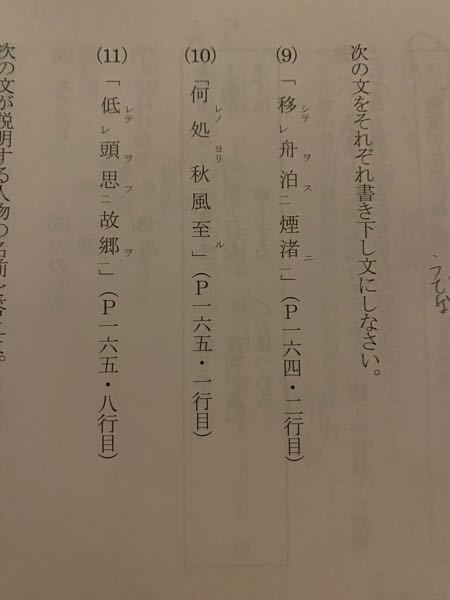 次の文をそれぞれ書き下し文にしなさい。
(9)「移シテレ舟ヲ泊ス二煙渚ニ一」(P一六四・二行目)
(10)「何レノ処ヨリ秋風至ル」(P一六五・一行目)
(11)「低レテレ頭ヲ思フ二故郷ヲ一」(P一六五・八行目)
次の文が説明する人物の名前を答え